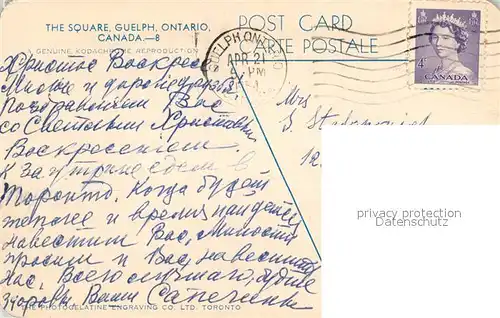 THE SQUARE, GUELPH, ONTARIO,
CANADA.—8
A GENUINE KODACHROME REPRODUCTION
POST CARD
CARTE POSTALE
GUELPH ONTARIO
APR 21
PM
4¢
CANADA
Христос Воскресе
Милые и дорогие друзья
Поздравляем Вас
со Светлым Христовым
Воскресением
К заутрене едем в
Торонто. Когда будет
теплее и время найдется
навестим Вас, Милости
просим и Вас, навестить
нас, Всего лучшего, будьте
здоровы Ваши
Mrs
S.
12
privacy protection
Datenschutz
THE PHOTOGELATINE ENGRAVING CO. LTD. TORONTO